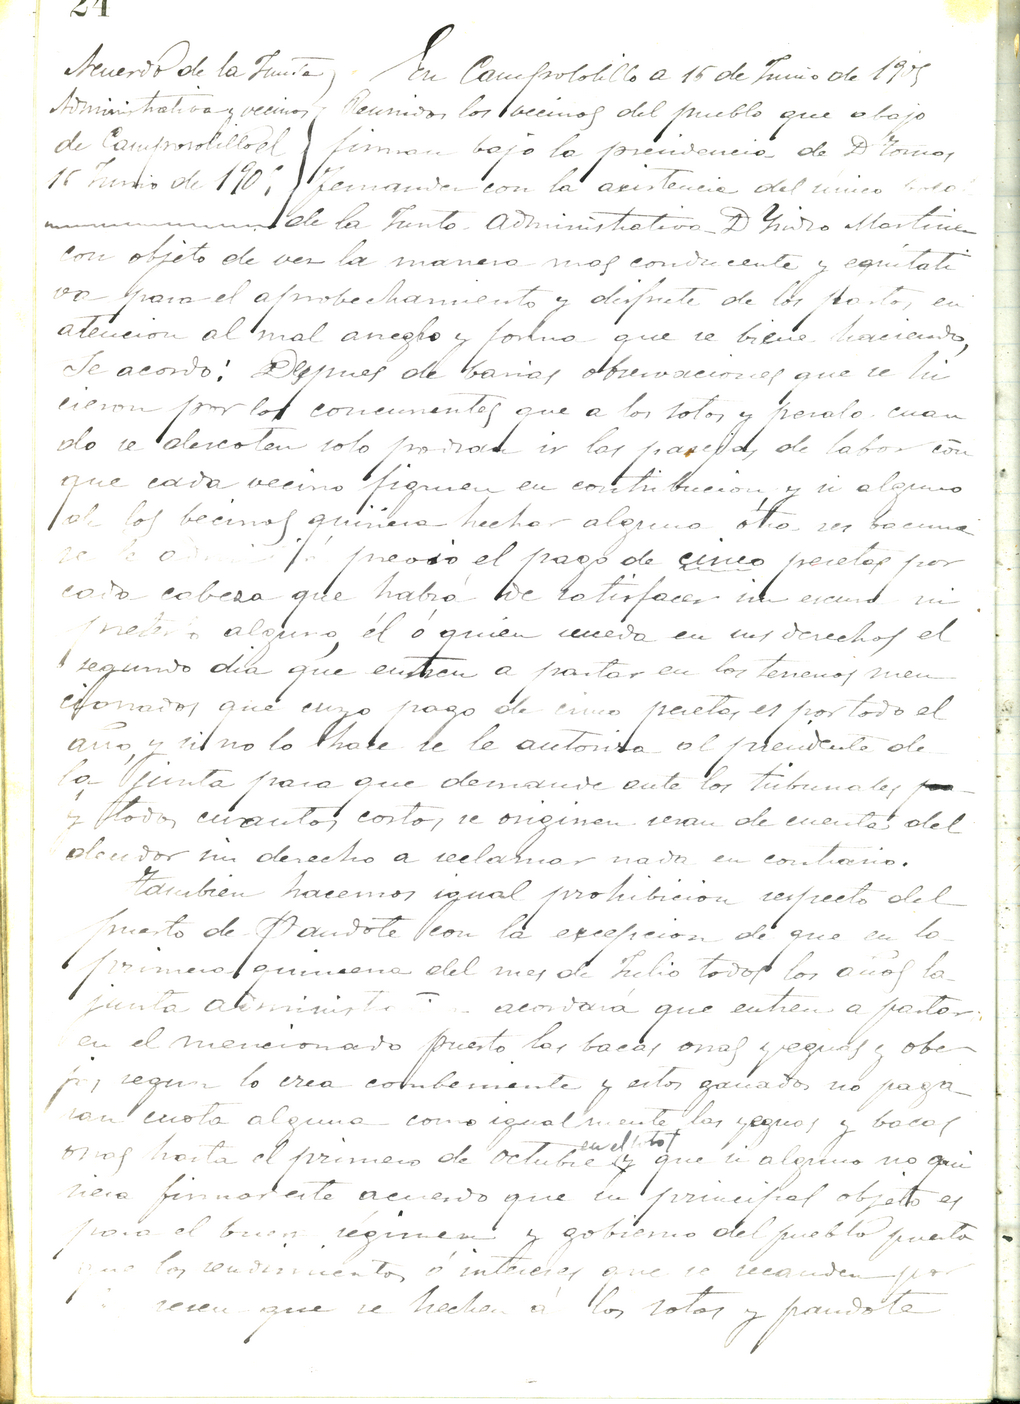 24
Acuerdo de la Junta
Administrativa y vecinos
de Camposolillo el
15 Junio de 190
En Camposolillo a 15 de Junio de 1905
Reunidos los vecinos del pueblo que abajo
firman bajo la presidencia de D Tomas
Fernandez con la asistencia del único
de la Junta Administrativa D Ysidro Martinez
con objeto de ver la manera mas conducente y equitati
va para el aprobechamiento y disfrute de los pastos en
atencion al mal arreglo y forma que se biene haciendo,
Se acordo: Despues de barias observaciones que se hi
cieron por los concurrentes que a los sotos y peralo cuan
do se descoten solo podran ir las parejas de labor con
que cada vecino figuren en contribucion y si alguno
de los becinos quisiera hechar alguna otra res bacuna
se le previo el pago de cinco pesetas por
cada cabeza que habrá de satisfacer sin escusa ni
pretesto alguno, él ó quién suceda en sus derechos el
segundo dia que entren a pastar en los terrenos men
cionados que cuyo pago de cinco pesetas es por todo el
año, y si no lo hace se le autoriza al presidente de
la junta para que demande ante los tribunales
y todos cuantos costos se originen seran de cuenta del
deudor sin derecho a reclamar nada en contrario.
Tambien hacemos igual prohibicion respecto del
puerto de Pandote con la excepcion de que en la
primera quincena del mes de Julio todos los años la
junta acordará que entren a pastar
en el mencionado puerto las bacas oras yeguas y obe
jas segun lo crea combeniente y estos ganados no paga
ran cuota alguna como igualmente las yeguas y bacas
oras hasta el primero de octubre en el soto y que si alguno no qui
siera firmar este acuerdo que su principal objeto es
para el buen régimen y gobierno del pueblo puesto
que los rendimientos ó intereses que se recauden por
reses que se hechen á los sotos y pandote